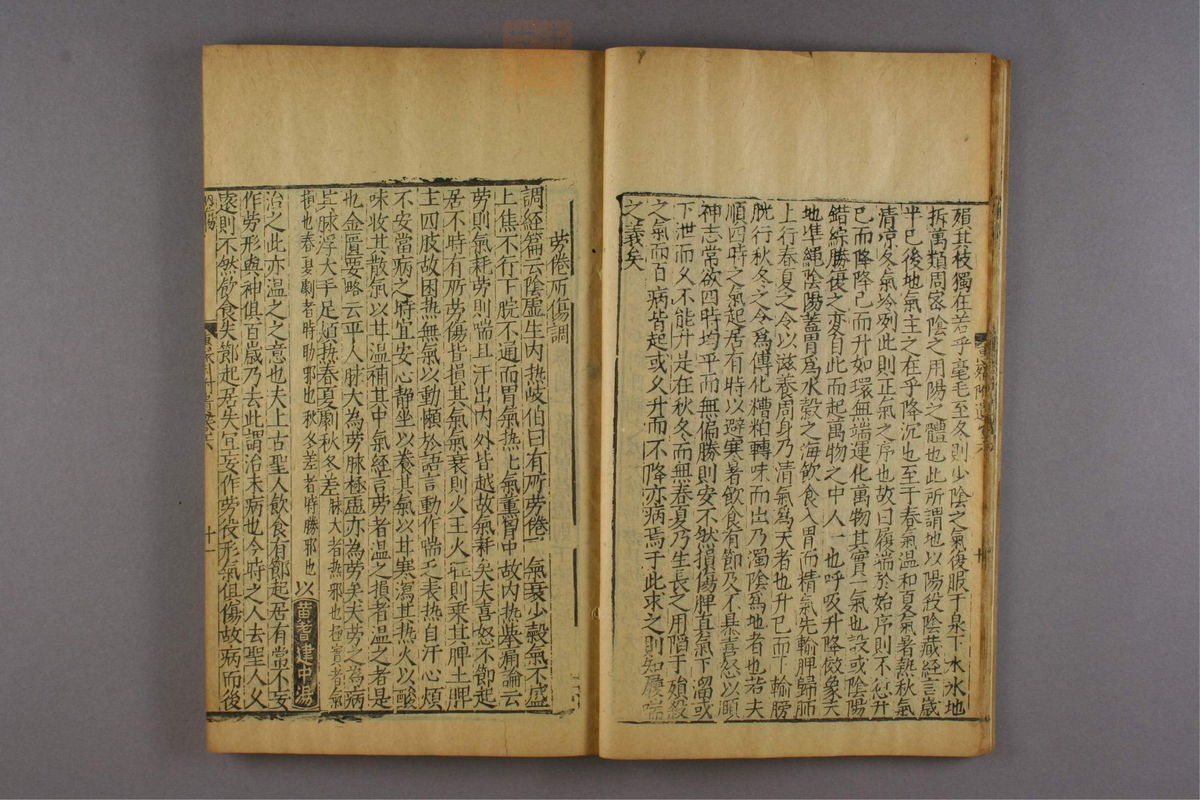 殞其枝獨在若乎毫毛至冬則少陰之氣復服于泉下水冰地
拆萬類周密陰之用陽之體也此所謂地以陽殺陰藏經言歲
半已後地氣主之在乎降沉也至于春氣溫和夏氣暑熱秋氣
清凉冬氣冷冽此則正氣之序也故曰履端於始序則不愆升
已而降降已而升如環無端運化萬物其實一氣也設或陰陽
錯綜勝復之変自此而起萬物之中人一也呼吸升降倣象天
地準繩陰陽蓋胃爲水穀之海飲食入胃而精氣先輸脾歸肺
上行春夏之令以滋養周身乃清氣爲天者也升已而下輸膀
胱行秋冬之令爲傳化糟粕轉味而出乃濁陰爲地者也若夫
順四時之氣起居有時以避寒暑飲食有節及不暴喜怒以頤
神志常欲四時均平而無偏勝則安不然損傷脾眞氣下溜或
下泄而久不能升是在秋冬而無春夏乃生長之用陷于殞殺
之氣而百病皆起或久升而不降亦病焉于此求之則知履端
之義矣
勞倦所傷調
調經篇云陰虛生内热岐伯曰有所勞倦氣衰少穀氣不盛
上焦不行下脘不通而胃氣热热氣熏胷中故内热挙痛論云
勞則氣耗勞則喘且汗出内外皆越故氣耗矣夫喜怒不節起
居不時有所勞傷皆損其氣氣衰則火王火王則乗其脾土脾
主四肢故困热無氣以動懶於語言動作喘乏表热自汗心煩
不安當病之時宜安心静坐以養其氣以甘寒瀉其热火以酸
味收其散氣以甘溫補其中氣経言勞者温之損者温之者是
也金匱要略云平人脉大為勞脉極虚亦為勞矣夫勞之為病
其脉浮大手足煩热春夏劇秋冬差脉大者热邪也極虚者氣
損也春夏劇者時助邪也秋冬差者時勝邪也以黄耆建中湯
治之此亦温之之意也夫上古聖人飲食有節起居有常不妄
作勞形與神俱百歳乃去此謂治未病也今時之人去聖人久
遠則不然飲食失節起居失宜妄作勞役形氣俱傷故病而後
十一